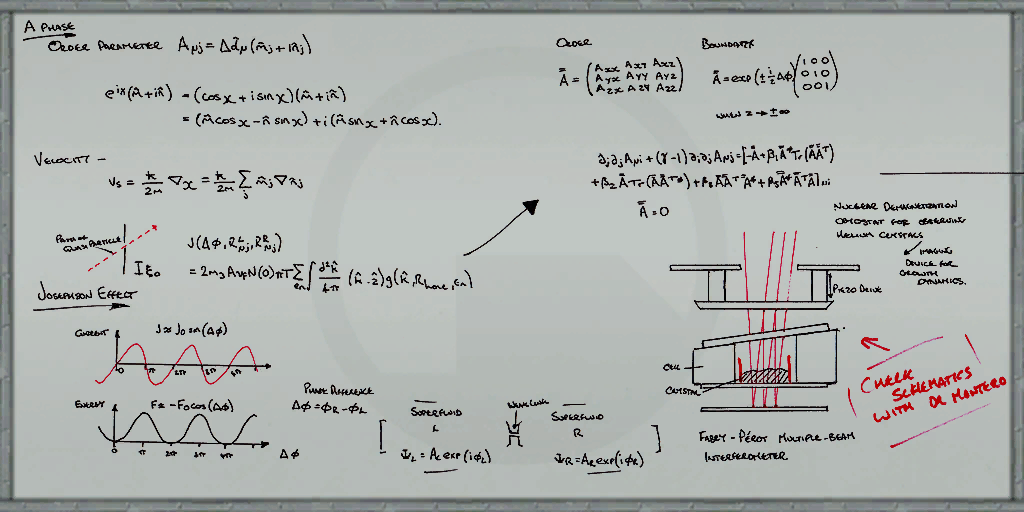 A PHASE
ORDER PARAMETER Aμj = Δd̂μ(m̂j + in̂j)
e^iχ(m̂ + in̂) = (cosχ + i sinχ)(m̂ + in̂)
= (m̂cosχ - n̂ sinχ) + i(m̂ sinχ + n̂ cosχ).
VELOCITY -
vs = ħ/2m ∇χ = ħ/2m ∑j m̂j ∇n̂j
PATH OF QUASIPARTICLE
ξ0
J(Δφ, R^L μj, R^R μj)
= 2m3 AvFN(0)πT ∑εn ∫ d²k̂/4π (k̂·ẑ)g(k̂, Rhole, εn)
JOSEPHSON EFFECT
CURRENT
J ≈ J0 sin(Δφ)
0 π 2π 3π 4π
ENERGY
F ≈ -F0 cos(Δφ)
0 π 2π 3π 4π
Δφ
PHASE DIFFERENCE
Δφ = φR - φL
SUPERFLUID
L
ΨL = AL exp(iφL)
WEAK LINK
SUPERFLUID
R
ΨR = AR exp(iφR)
ORDER
Ā = (Axx Axy Axz
Ayx Ayy Ayz
Azx Azy Azz)
BOUNDARY
Ā = exp(± i/2 Δφ)(1 0 0
0 1 0
0 0 1)
WHEN Z → ±∞
∂j∂jAμi + (γ-1)∂i∂jAμj = [-Ā + β1 Ā* Tr(ĀĀᵀ)
+ β2 Ā Tr(ĀĀᵀ*) + β3 ĀĀᵀĀ* + β5 Ā*ĀᵀĀ]μi
Ā = 0
NUCLEAR DEMAGNETIZATION
CRYOSTAT FOR OBSERVING
HELIUM CRYSTALS
IMAGING
DEVICE FOR
GROWTH
DYNAMICS.
PIEZO DRIVE
CELL
CRYSTAL
CHECK
SCHEMATICS
WITH DR MONTERO
FABRY-PÉROT MULTIPLE-BEAM
INTERFEROMETER